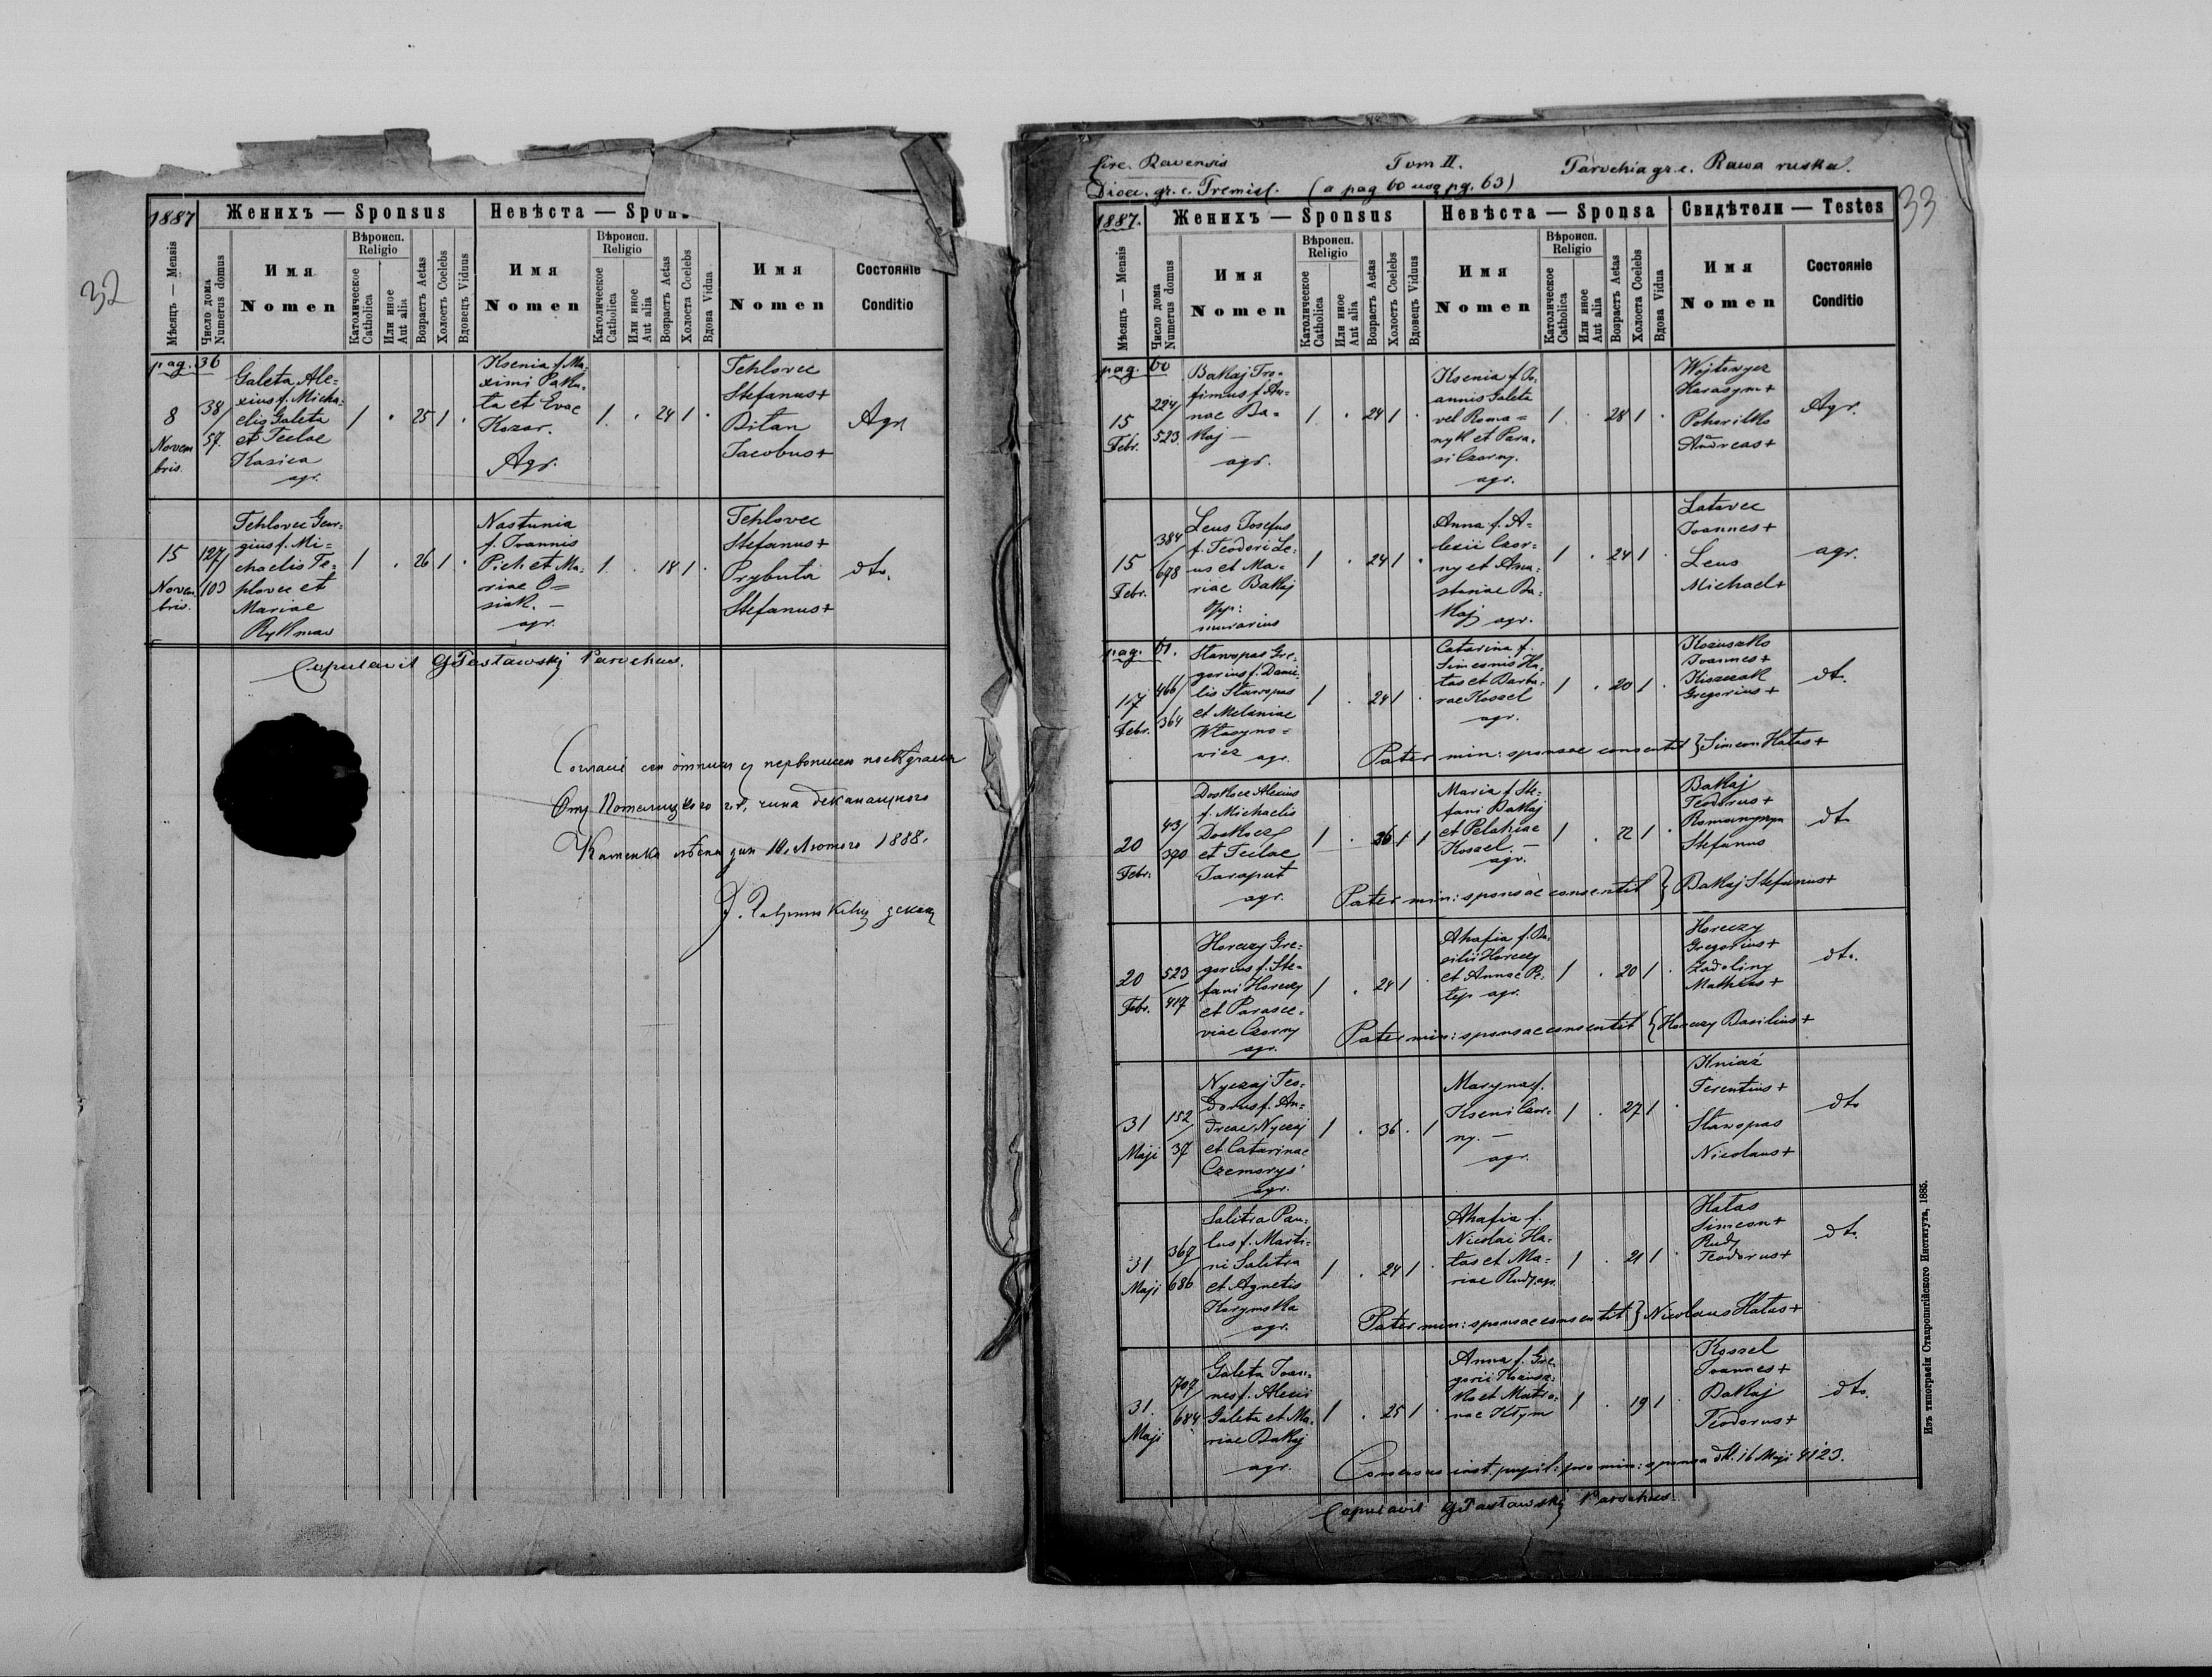 32
1887
Женихъ — Sponsus
Невѣста — Spons
Мѣсяцъ — Mensis
Число дома
Numerus domus
Имя
Nomen
Вѣроисп.
Religio
Католическое
Catholica
Или иное
Aut alia
Возрастъ Aetas
Холостъ Coelebs
Вдовецъ Viduus
Имя
Nomen
Вѣроисп.
Religio
Католическое
Catholica
Или иное
Aut alia
Возрастъ Aetas
Холоста Coelebs
Вдова Vidua
Имя
Nomen
Состояніе
Conditio
pag. 36
8
Novem
bris.
38/
57.
Galeta Ale=
xius f. Micha=
elis Galeta
et Teclae
Kasica
agr.
1 . 25 1 .
Ksenia f. Ma=
ximi Paku=
ta et Evae
Kozar.
Agr.
1. . 24 1 .
Tehlovec
Stefanus+
Bitan
Jacobus+
Agr
15
Novem
bris.
127/
103
Tehlovec Geor=
gius f. Mi=
chaelis Te=
hlovec et
Mariae
Rykmas
1 . 26 1 .
Nastunia
f. Ioannis
Pich et Ma=
riae O=
siak. —
agr.
1. . 18 1 .
Tehlovec
Stefanus+
Prybuta
Stefanus+
dto.
Copulavit GTastawskij Parochus.
1888.
33
Circ. Ravensis
Tom II.
Parochia gr. c. Rawa ruska.
Dioec. gr. c. Premisl.
(a pag 60 usq pg. 63)
1887.
Женихъ — Sponsus
Невѣста — Sponsa
Свидѣтели — Testes
Мѣсяцъ — Mensis
Число дома
Numerus domus
Имя
Nomen
Вѣроисп.
Religio
Католическое
Catholica
Или иное
Aut alia
Возрастъ Aetas
Холостъ Coelebs
Вдовецъ Viduus
Имя
Nomen
Вѣроисп.
Religio
Католическое
Catholica
Или иное
Aut alia
Возрастъ Aetas
Холоста Coelebs
Вдова Vidua
Имя
Nomen
Состояніе
Conditio
pag. 60
15
Febr.
224/
523
Bakaj Tro=
fimus f. An=
nae Ba=
kaj —
agr.
1. . 24 1
Ksenia f. Jo=
annis Galeta
vel Roma=
nyk et Para.
si Czorny.
agr.
1. . 28 1 .
Wojtowycz
Harasym+
Pohorilko
Andreas+
Agr.
15
Febr.
384
/
698
Leus Josefus
f. Teodori Le=
us et Ma=
riae Bakaj
Opp:
murarius
1 . 24 1 .
Anna f. A=
lexii Czor=
ny et Ana=
stasiae Ba=
kaj agr.
1 . 24 1 .
Latavec
Ioannes+
Leus
Michael+
agr.
pag. 61.
17
Febr.
466/
364
Stawopas Gre=
gorius f. Dani=
lis Stawopas
et Melaniae
Własyno=
wicz agr.
1 . 24 1 .
Catarina f.
Simeonis Ha=
tas et Barba=
rae Koszel
agr.
1 . 20 1 .
Koziuszko
Ioannes+
Kiszczak
Gregorius+
dt.
Pater min: sponsae consentit } Simeon Hatas+
20
Febr.
43/
390
Doskocz Alexius
f. Michaelis
Doskocz
et Teclae
Taraput
agr.
1 . 36 1 1
Maria f. Ste=
fani Bakaj
et Pelahiae
Koszel. —
agr.
1 . 22 1 .
Bakaj
Teodorus+
Stefanus
dto
Pater min: sponsae consentit } Bakaj Stefanus+
20
Febr.
523
/
417
Horeczy Gre=
gorius f. Ste=
fani Horeczy
et Parasce=
viae Czorny
agr.
1 . 24 1 .
Ahafia f. Ba=
silii Horeczy
et Annae Pe=
tep agr.
1 . 20 1 .
Horeczy
Gregorius+
Zadoliny
Mathias+
dto.
Pater min: sponsae consentit { Horeczy Basilius+
31
Maji
152
/
37
Nyczaj Teo=
dorus f. An=
dreae Nyczaj
et Catarinae
Czemerys
agr.
1 . 36 . 1
Maryna f.
Kseni Czor=
ny. —
agr.
1 . 27 1 .
Kniaź
Terentius+
Stawopas
Nicolaus+
dto
31
Maji
367
/
686
Salitra Pau=
lus f. Marti=
ni Salitra
et Agnetis
Karymska
agr.
1 . 24 1 .
Ahafia f.
Nicolai Ha=
tas et Ma=
riae Rudy agr.
1 . 21 1 .
Hatas
Simeon+
Rudy
Teodorus+
dto.
Pater min: sponsae consentit } Nicolaus Hatas+
31.
Maji
707/
684
Galeta Ioan=
nes f. Alexii
Galeta et Ma=
riae Bakaj
agr.
1 . 25 1 .
Anna f. Gre=
gorii Koziusz=
ko et Matro=
nae Kłym
1 . 19 1 .
Koszel
Ioannes+
Bakaj
Teodorus+
dto.
Consensus inst. pupil: pro min: sponsa dt. 16 Maji 4123.
Copulavit GTastawskij Parochus.
Изъ типографіи Ставропигійского Института, 1885.